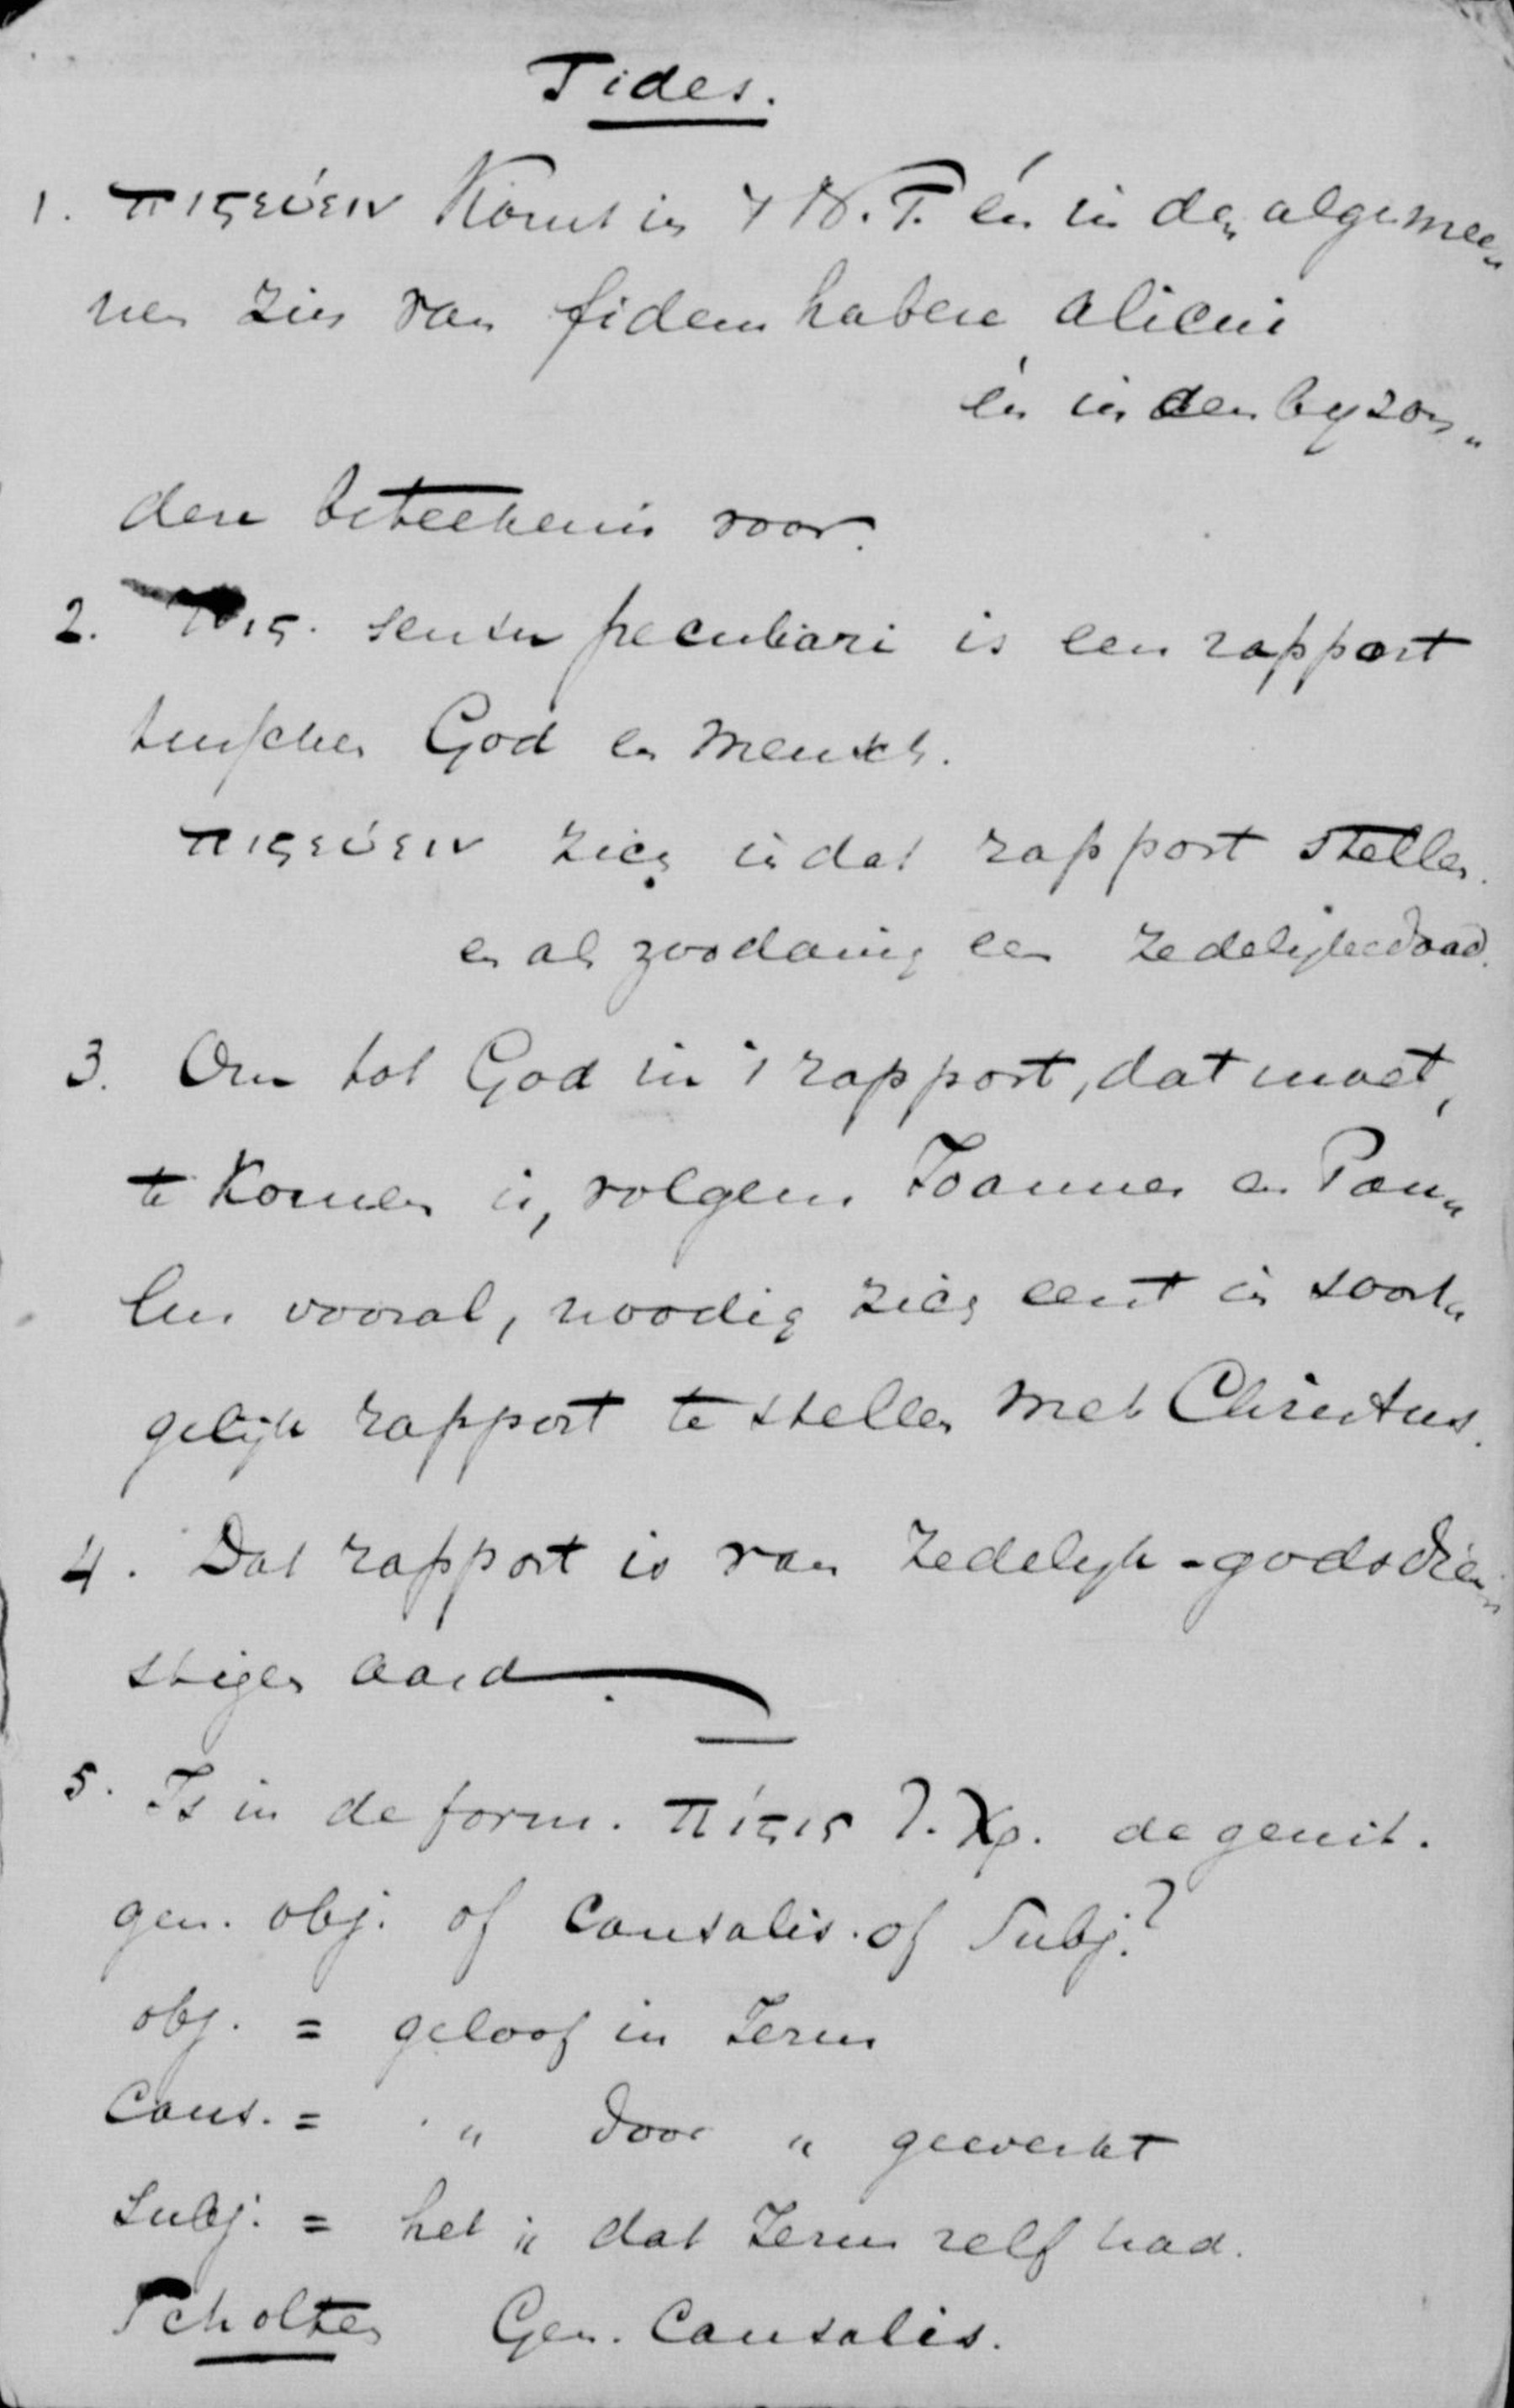 Fides.
1. πιςεύειν Komt in 't N. T. én in den algemee„
nen zin van fidem habere alicui
én in den byzon„
dere beteekenis voor.
2. Πις. sensu peculiari is een rapport
tusschen God en Mensch.
πιςεύειν zich in dat rapport stellen.
en als zoodanig een zedelijke daad.
3. Om tot God in 't rapport, dat moet,
te komen is, volgens Joannes en Pau„
lus vooral, noodig zich eerst in soort„
gelijk rapport te stellen met Christus.
4. Dat rapport is van zedelijk-godsdien„
stigen aard.
5. Is in de form. πίςις Ἰ. Χρ. de genit.
gen. obj. of causalis. of Subj.?
obj. = geloof in Jezus
Caus. = „ door „ gewerkt
Subj. = het „ dat Jezus zelf had.
Scholten Gen. Causalis.